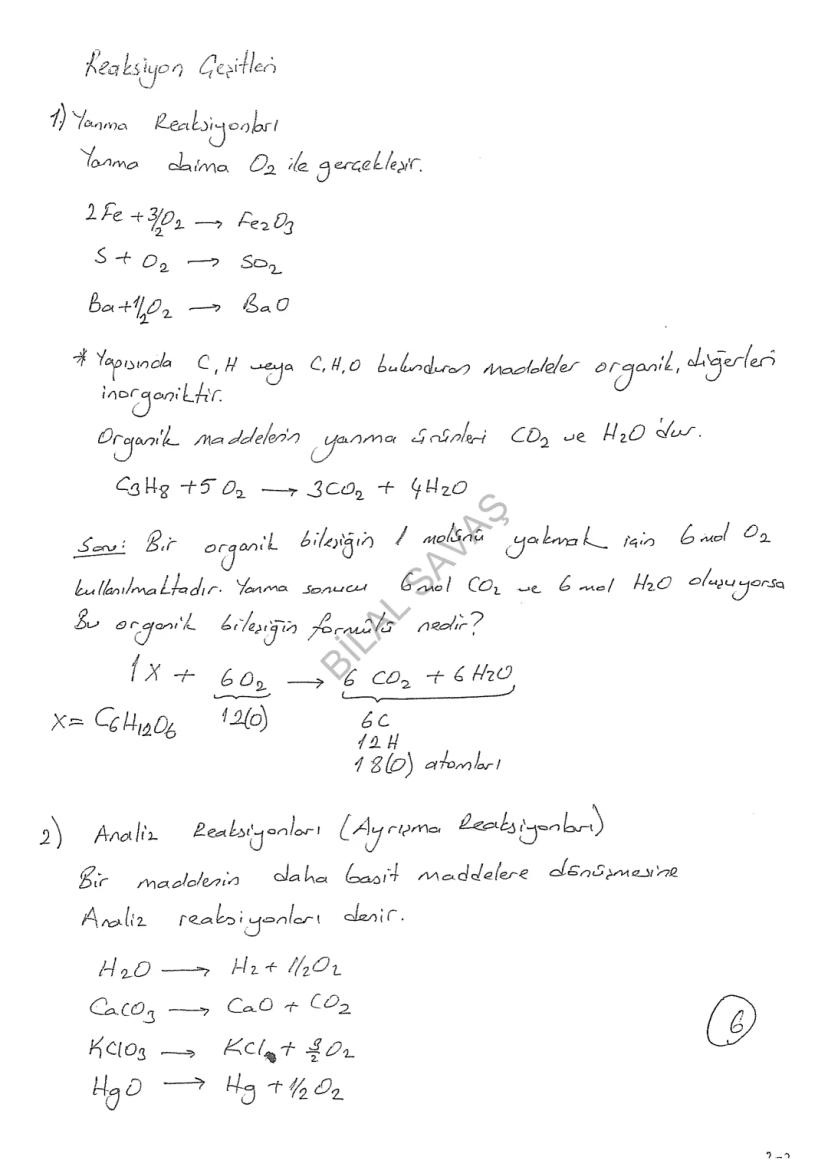 Reaksiyon Çeşitleri
1.) Yanma Reaksiyonları
Yanma daima O2 ile gerçekleşir.
2Fe + 3/2O2 → Fe2O3
S + O2 → SO2
Ba + 1/2O2 → BaO
* Yapısında C, H veya C, H, O bulunduran maddeler organik, diğerleri
inorganiktir.
Organik maddelerin yanma ürünleri CO2 ve H2O'dur.
C3H8 + 5O2 → 3CO2 + 4H2O
Soru: Bir organik bileşiğin 1 molünü yakmak için 6 mol O2
kullanılmaktadır. Yanma sonucu 6 mol CO2 ve 6 mol H2O oluşuyorsa
Bu organik bileşiğin formülü nedir?
BİLAL SAVAŞ
1X + 6O2 → 6 CO2 + 6 H2O
X = C6H12O6 12(O) 6C
12H
18(O) atomları
2) Analiz Reaksiyonları (Ayrışma Reaksiyonları)
Bir maddenin daha basit maddelere dönüşmesine
Analiz reaksiyonları denir.
H2O → H2 + 1/2O2
CaCO3 → CaO + CO2
KClO3 → KCl + 3/2 O2
HgO → Hg + 1/2O2
6